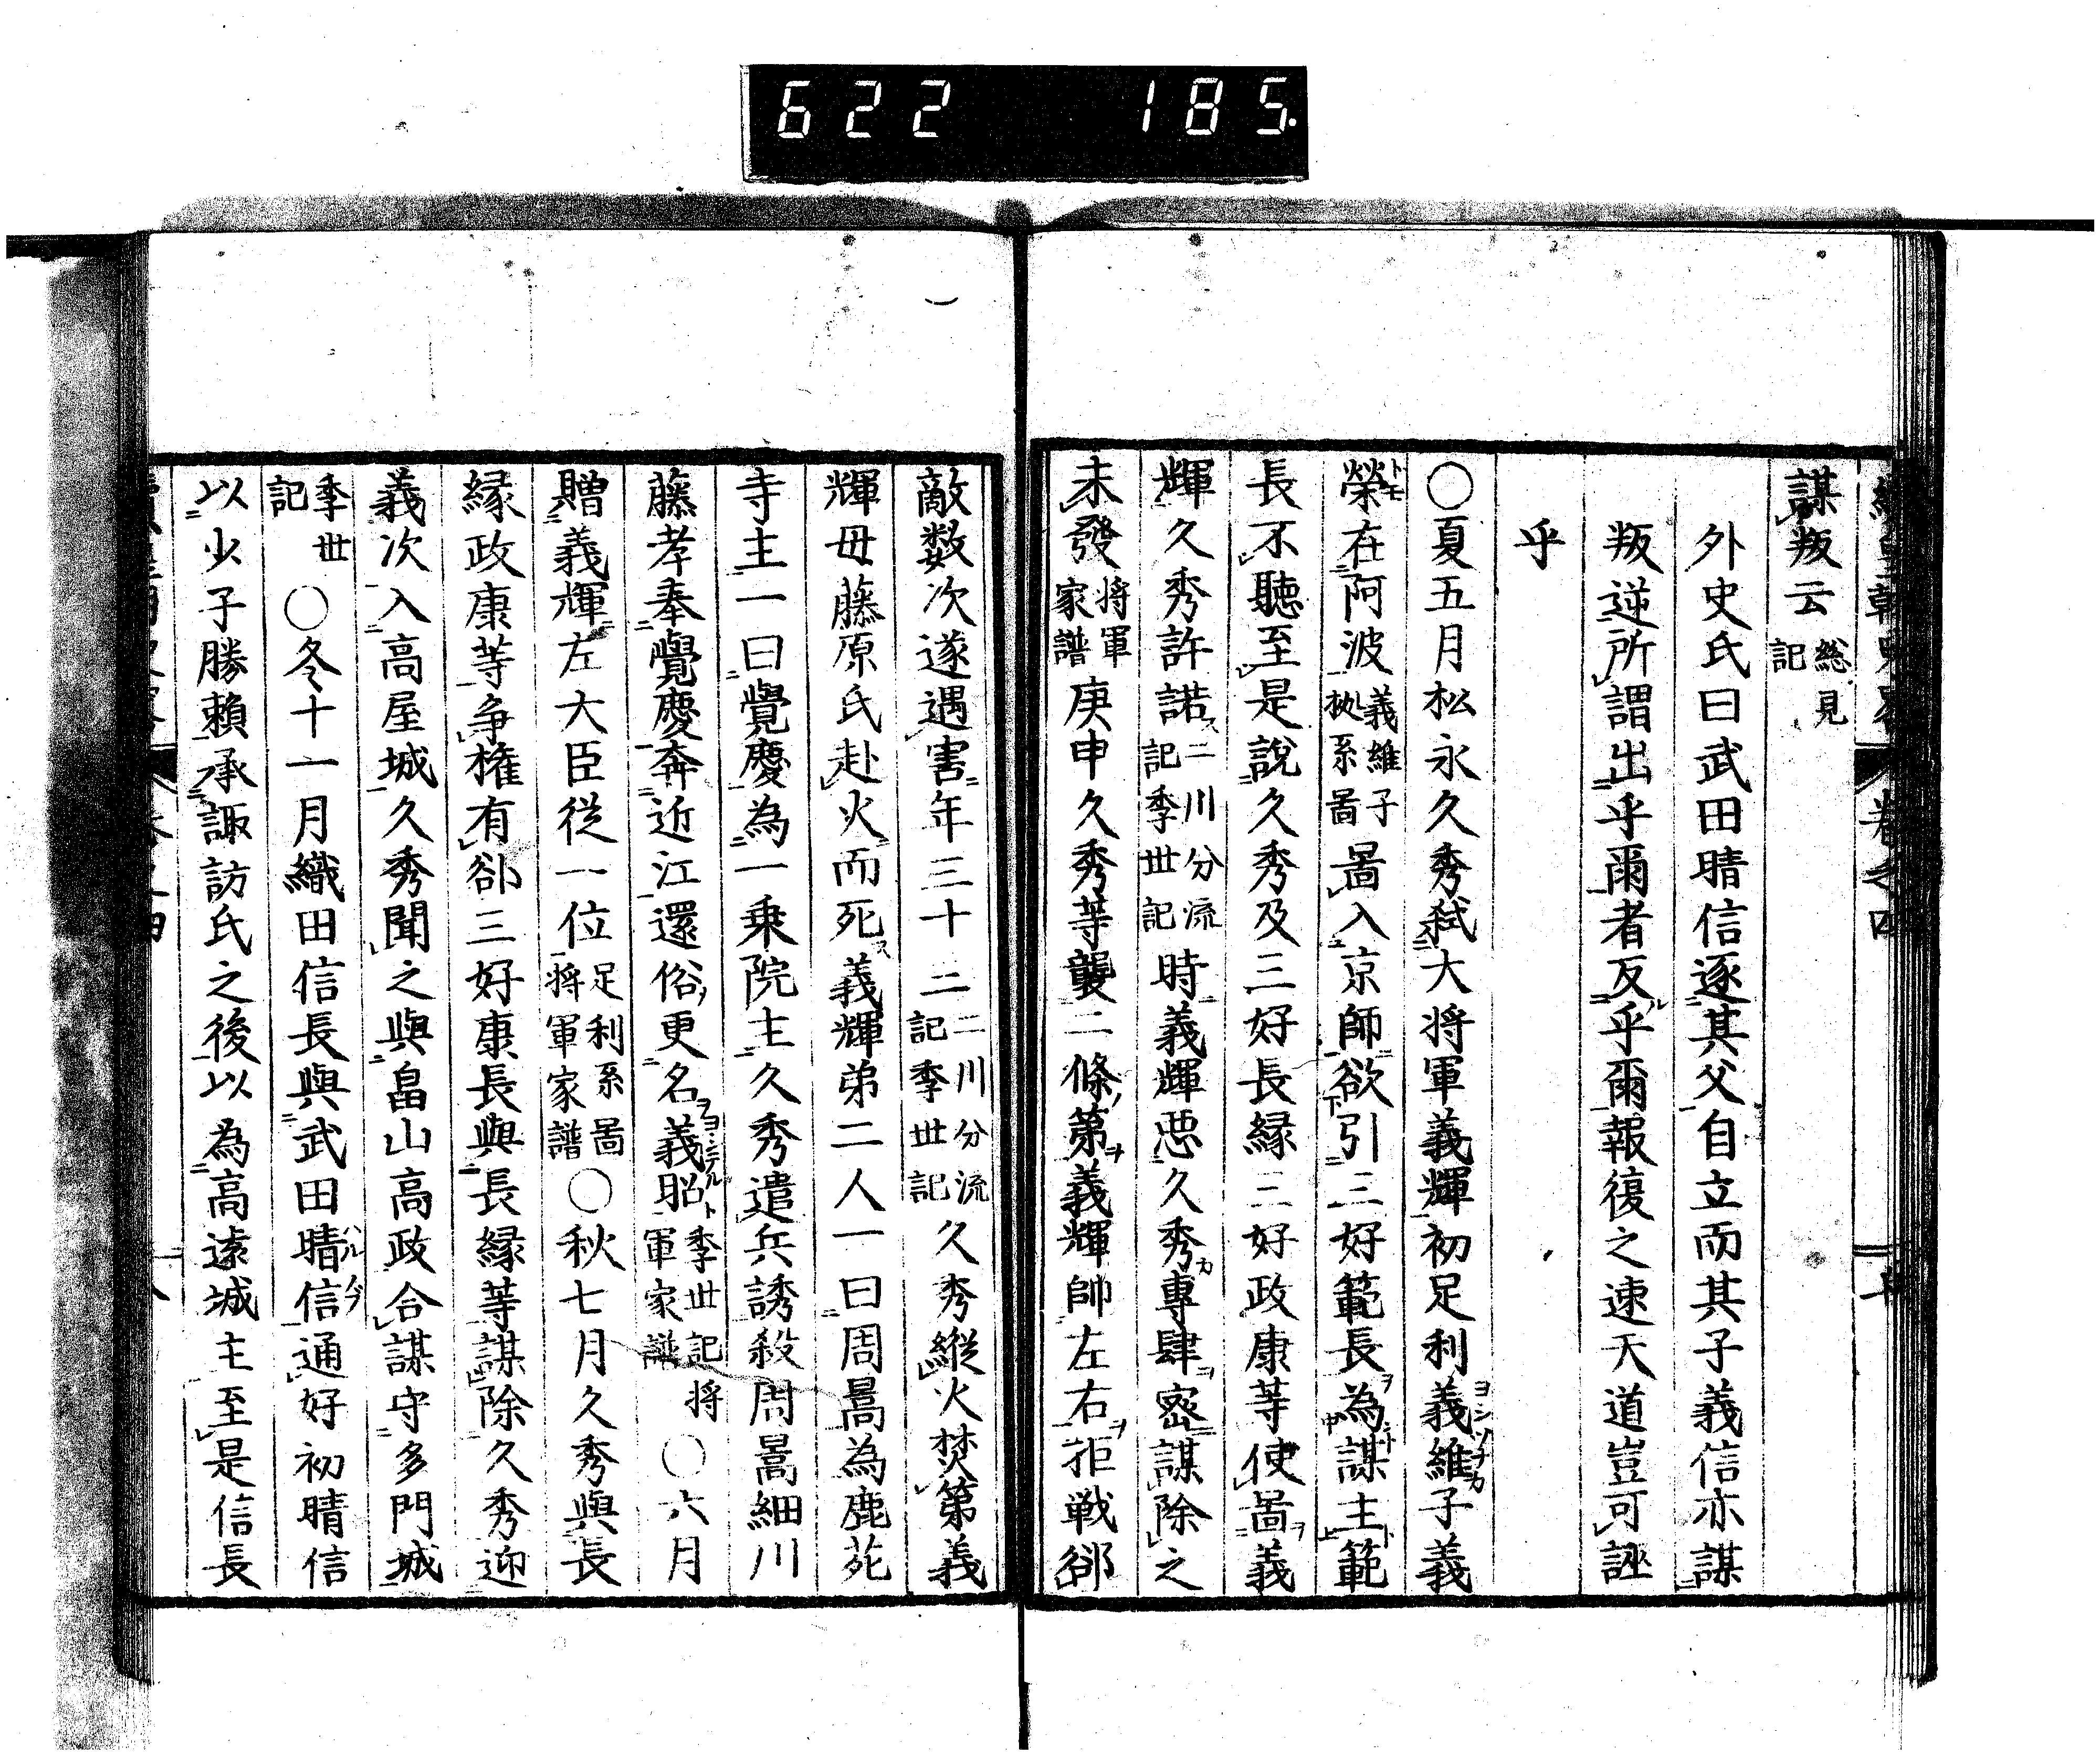 622 185.
謀叛云總見記
外史氏曰武田晴信逐其父自立而其子義信亦謀
叛逆所謂出乎爾者反乎爾報復之速天道豈可誣
乎
○夏五月松永久秀弑大将軍義輝初足利義維子義
榮在阿波義維子拠系啚啚入京師欲引三好範長為謀主範
長不聽至是說久秀及三好長緣三好政康等使啚義
輝久秀許諾二川分流記季世記時義輝悪久秀專肆密謀除之
未發将軍家譜庚申久秀等襲二條第義輝帥左右拒戦郤
敵数次遂遇害年三十二二川分流記季世記久秀縱火焚第義
輝母藤原氏赴火而死義輝弟二人一曰周暠為鹿苑
寺主一曰覺慶為一乗院主久秀遣兵誘殺周暠細川
藤孝奉覺慶奔近江還俗更名義昭季世記将軍家譜○六月
贈義輝左大臣從一位足利系啚将軍家譜○秋七月久秀與長
緣政康等争権有郤三好康長與長緣等謀除久秀迎
義次入高屋城久秀聞之與畠山高政合謀守多門城
季世記○冬十一月織田信長與武田晴信通好初晴信
以少子勝賴承諏訪氏之後以為高遠城主至是信長